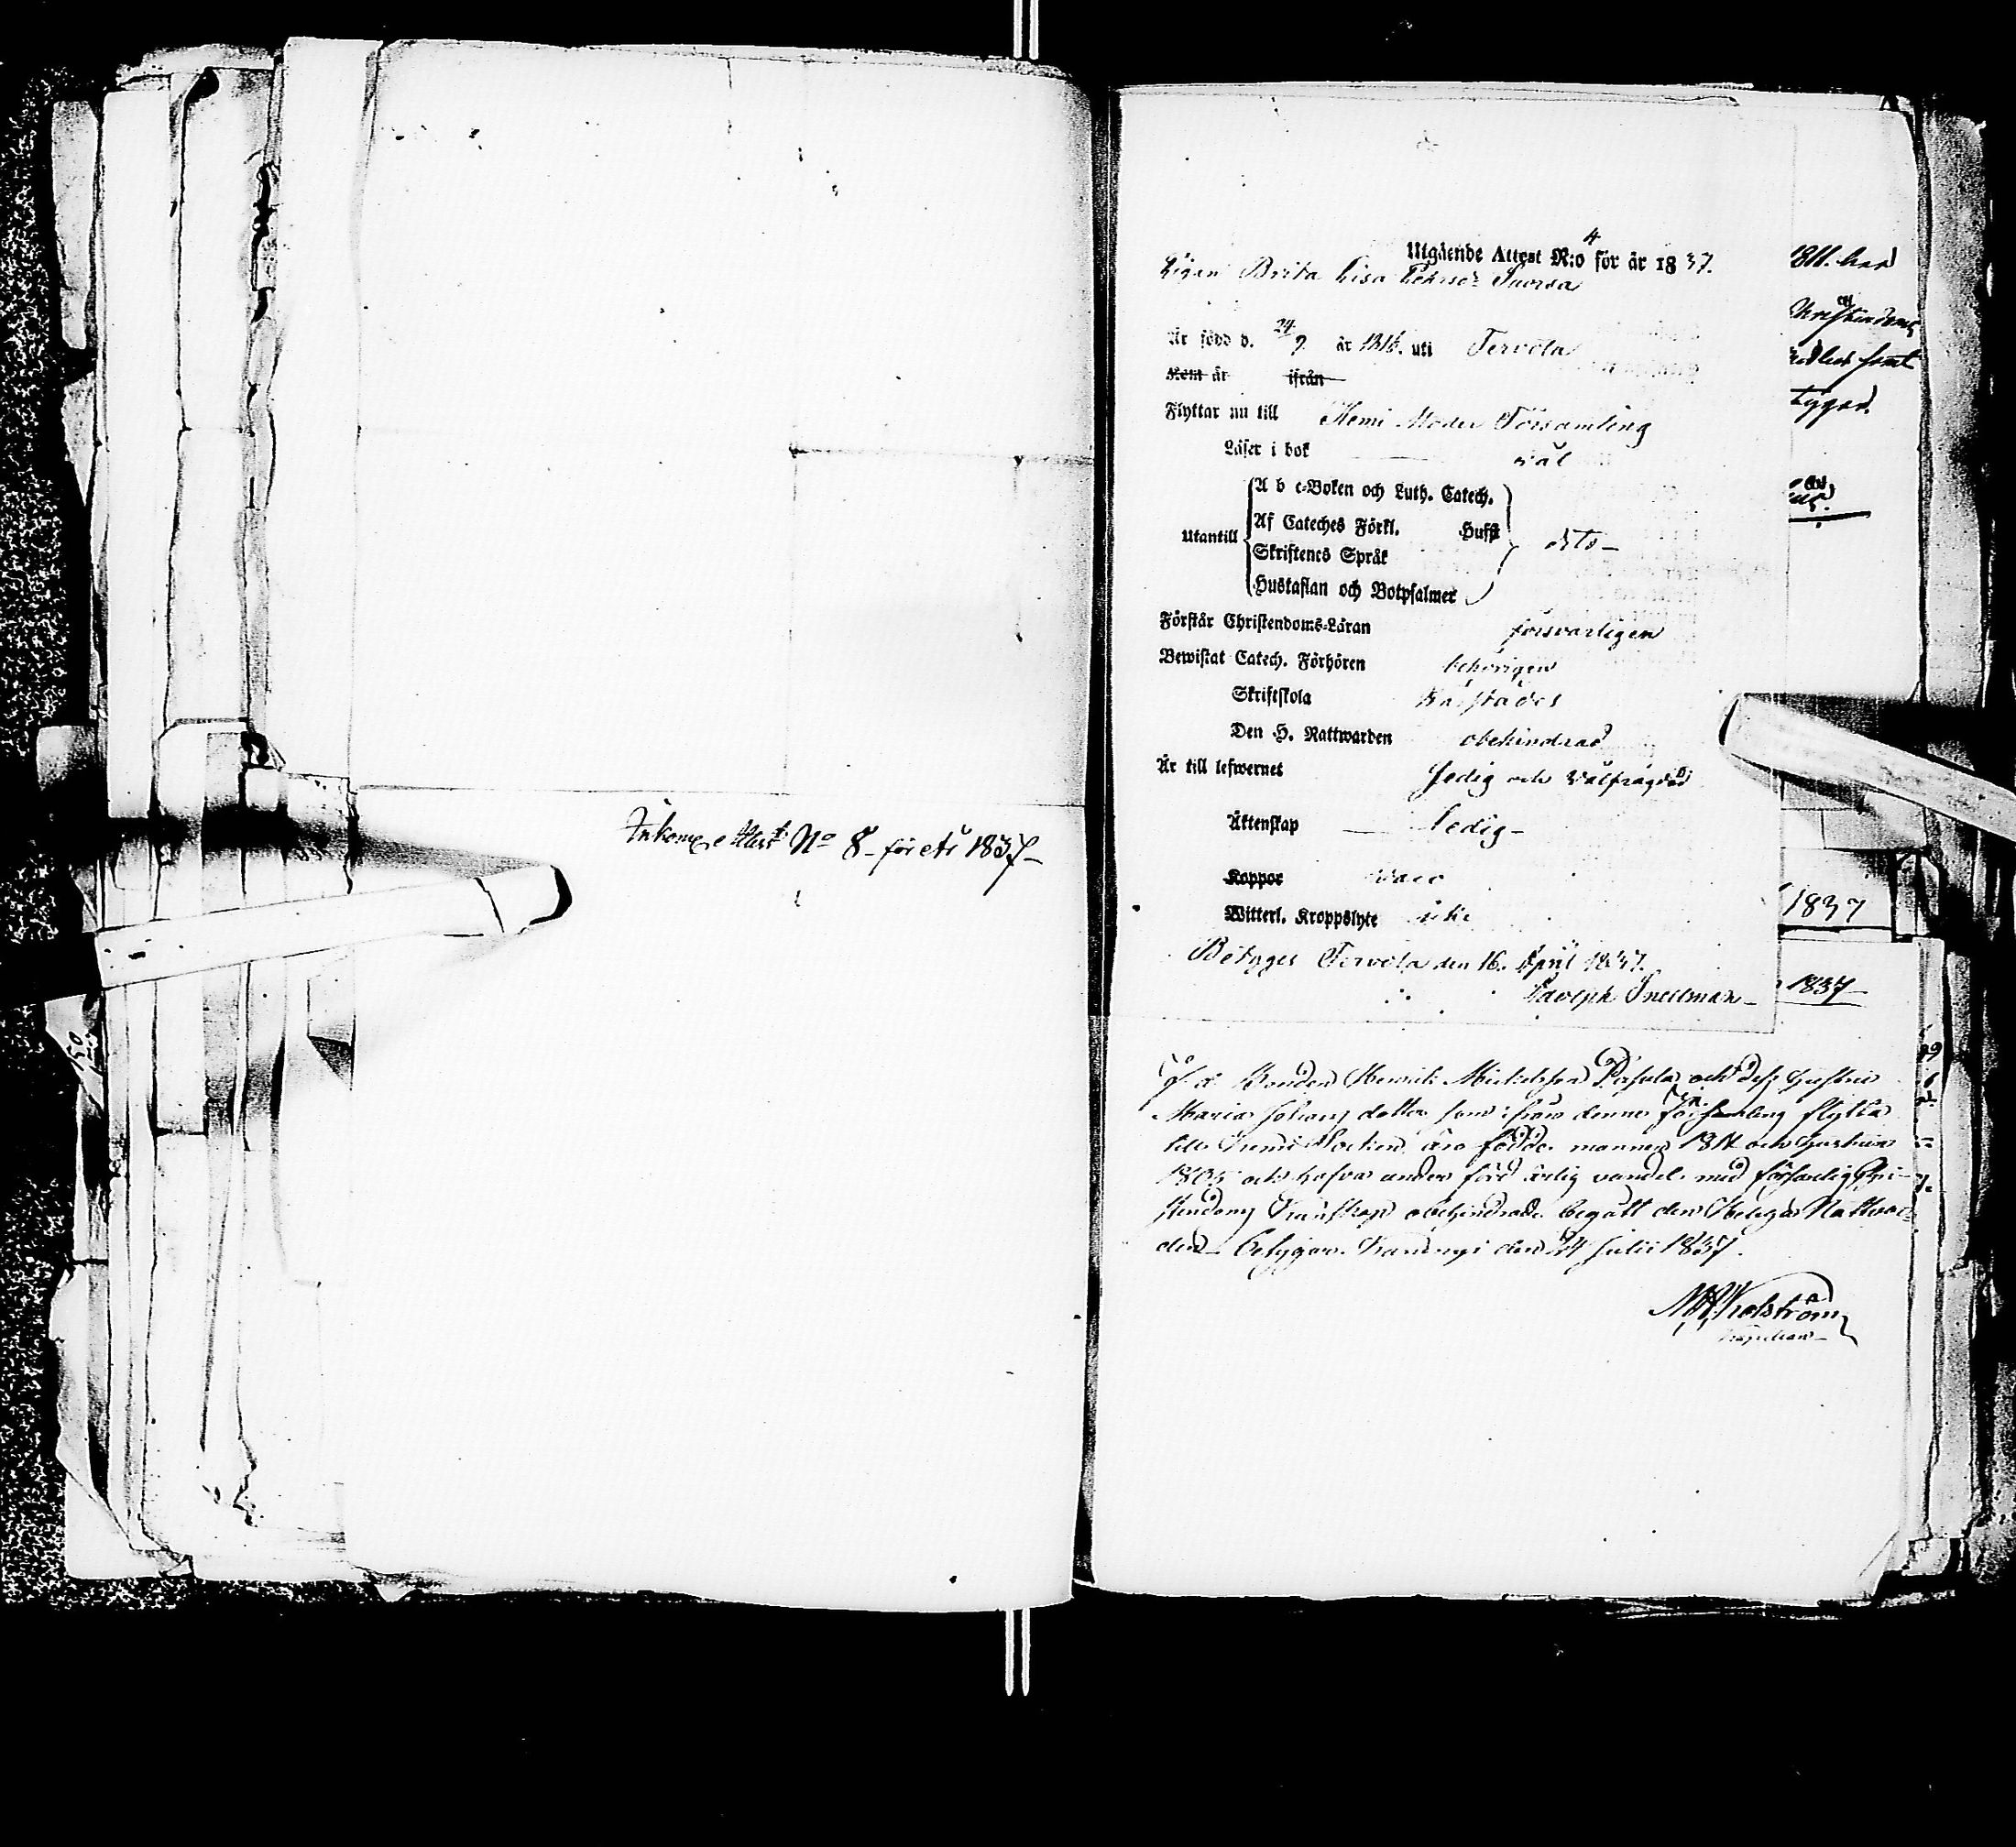 Inkomne Attest No 8 för År 1837
Utgående Attest N:o 4 för år 1837.
Pigan Brita Lisa Pehrsdr Suorsa
Är född d. 24/9 år 1816. uti Tervola
Kom år ifrån
Flyttar nu till Kemi Moder Församling
Läser i bok väl
Utantill
A b c-Boken och Luth. Catech.
Af Cateches Förkl. Husfl
Skriftenes Språk
dito
Hustaflan och Botpsalmer
Förstår Christendoms-Läran försvarligen
Bewistat Catech. Förhören behörigen
Skriftskola
Den H. Nattwarden obehindrad
Är till lefwernet sedig och välfrägdad
Äktenskap Ledig
Koppor
Witterl. Kroppslyte icke
Betyger Tervola den 16. April 1837.
Adolph Snellman
1811. har
Christendoms
tygar.
1837
1837
F. d. Bonden Henrik Mickelsson och dess hustru
Maria Johans dotter som ifrån denna församling flytta
till Kemi Socken äro födde mannen 1811 och hustrun
1805 och hafva under förd ärlig vandel med försvarlig Chri-
stendoms Kunskap obehindrade begått den Heliga Nattvar-
den betygar. den 24 Julii 1837.
Kapellan